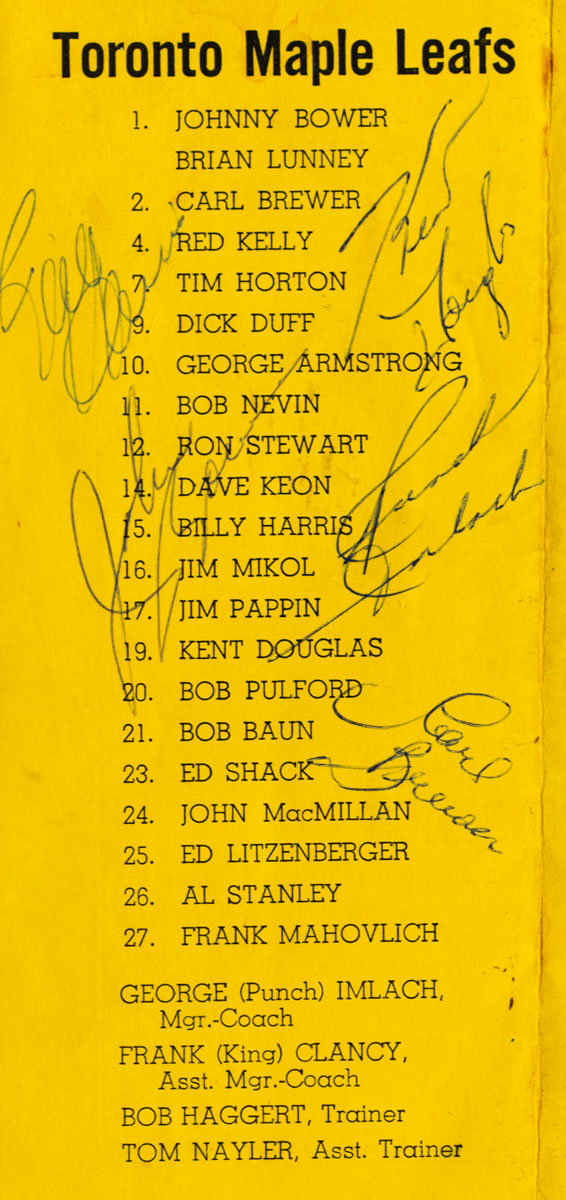 Toronto Maple Leafs
1. JOHNNY BOWER
BRIAN LUNNEY
2. CARL BREWER
4. RED KELLY
7. TIM HORTON
9. DICK DUFF
10. GEORGE ARMSTRONG
11. BOB NEVIN
12. RON STEWART
14. DAVE KEON
15. BILLY HARRIS
16. JIM MIKOL
17. JIM PAPPIN
19. KENT DOUGLAS
20. BOB PULFORD
21. BOB BAUN
23. ED SHACK
24. JOHN MacMILLAN
25. ED LITZENBERGER
26. AL STANLEY
27. FRANK MAHOVLICH
GEORGE (Punch) IMLACH,
Mgr.-Coach
FRANK (King) CLANCY,
Asst. Mgr.-Coach
BOB HAGGERT, Trainer
TOM NAYLER, Asst. Trainer
Punch
Imlach
Carl
Brewer